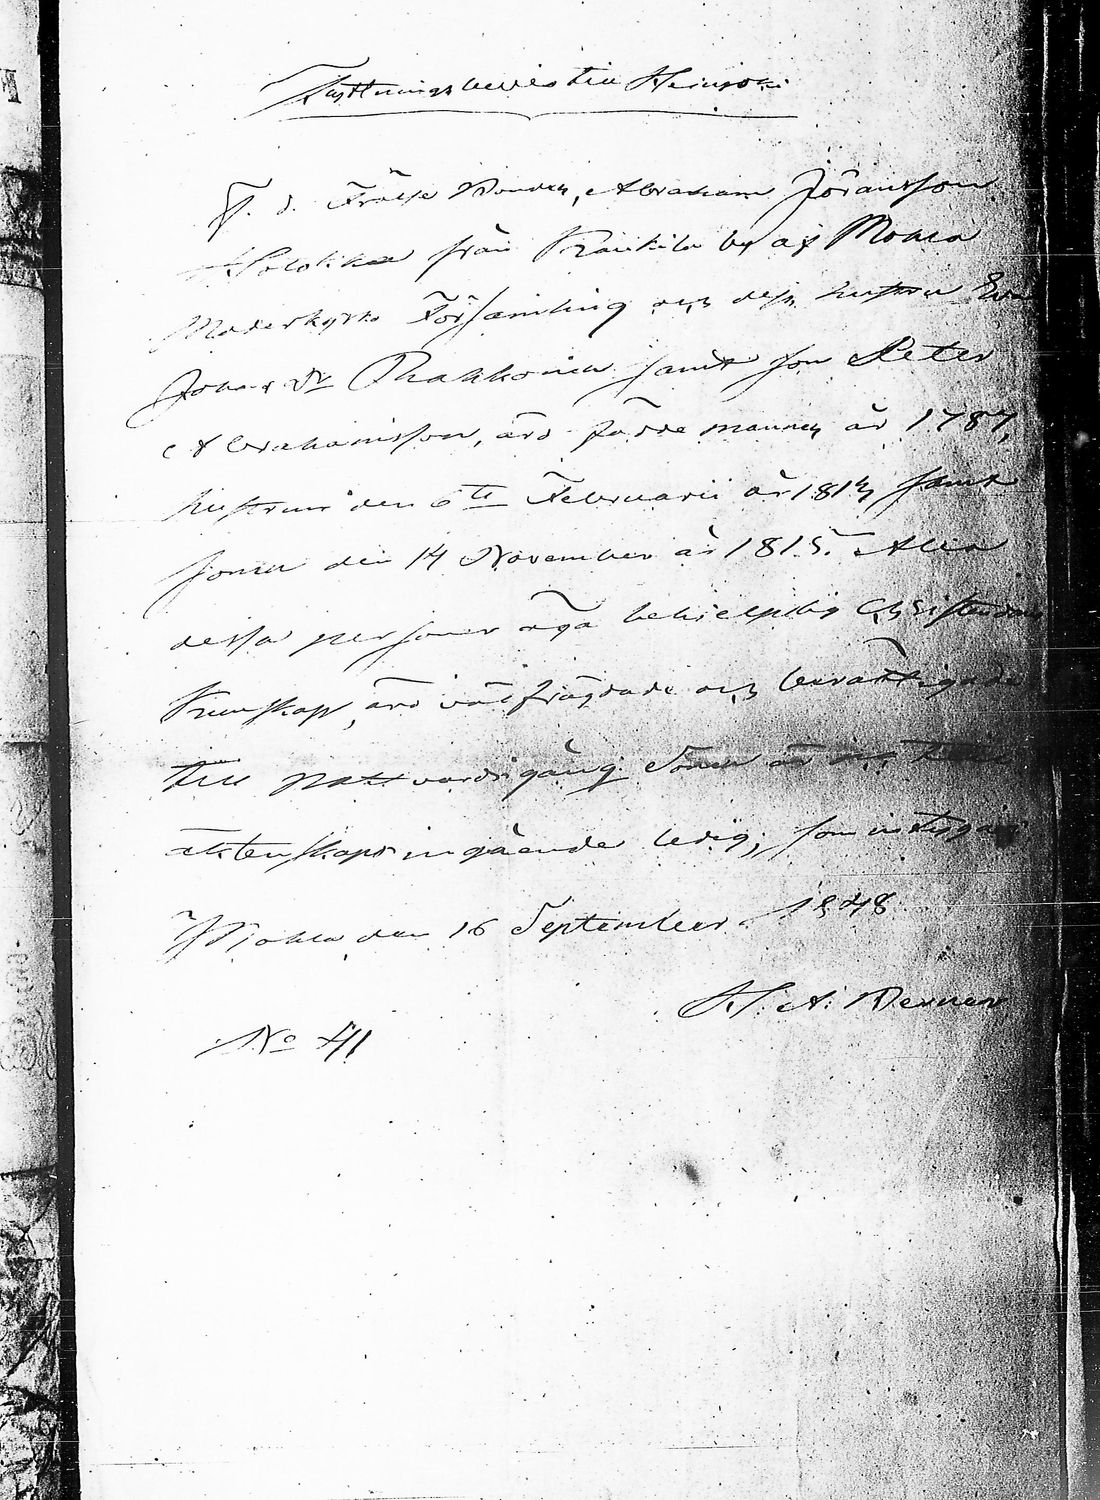 Flyttningsbevis till Heinjoki
F. d. Frälse Bonden, Abraham Jöransson
från Kaukila by af Mohla
Moderkyrko Församling och dess hustru Eva
Johans Dr Phakkoinen samt son Peter
Abrahamsson, äro födde mannen år 1787,
hustrun den 6te Februarii år samt
sonen den 14 November år 1815. Alla
dessa personer äga behielpelig Christendoms
Kunskap, äro välfrägdade och berättigade
till nattvardsgång Sonen är
äktenskaps ingående ledig, som intygar
Mohla den 16 September 1848
H. A.
No 41